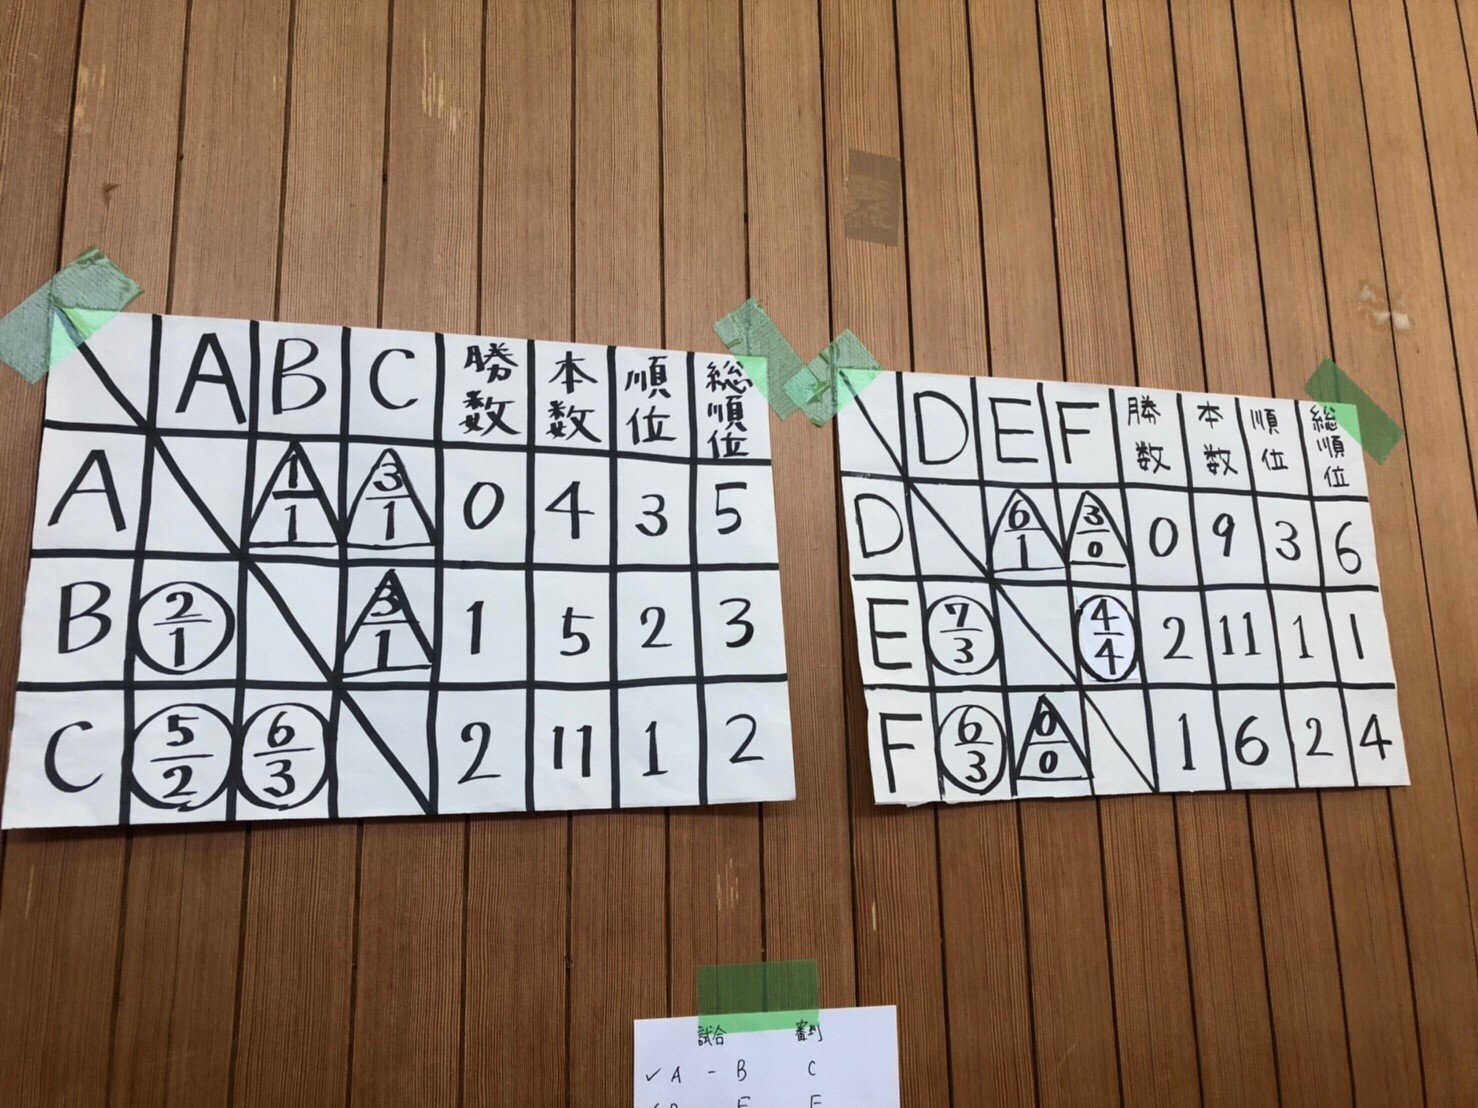 A B C 勝数 本数 順位 総順位
A 1/1 3/1 0 4 3 5
B 2/1 3/1 1 5 2 3
C 5/2 6/3 2 11 1 2
D E F 勝数 本数 順位 総順位
D 6/1 3/0 0 9 3 6
E 7/3 4/4 2 11 1 1
F 6/3 0/0 1 6 2 4
試合 審判
✓ A - B C